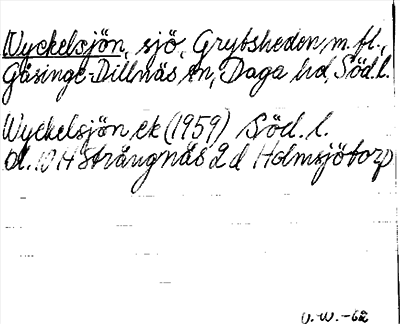 Nyckelsjön, sjö, Grytsheden, m. fl.,
Gåsinge-Dillnäs sn, Daga hd, Södl.
Nyckelsjön ek (1959) Söd. l.
bl. 10 H Strängnäs 2 d Holmsjötorp
U.W.-62